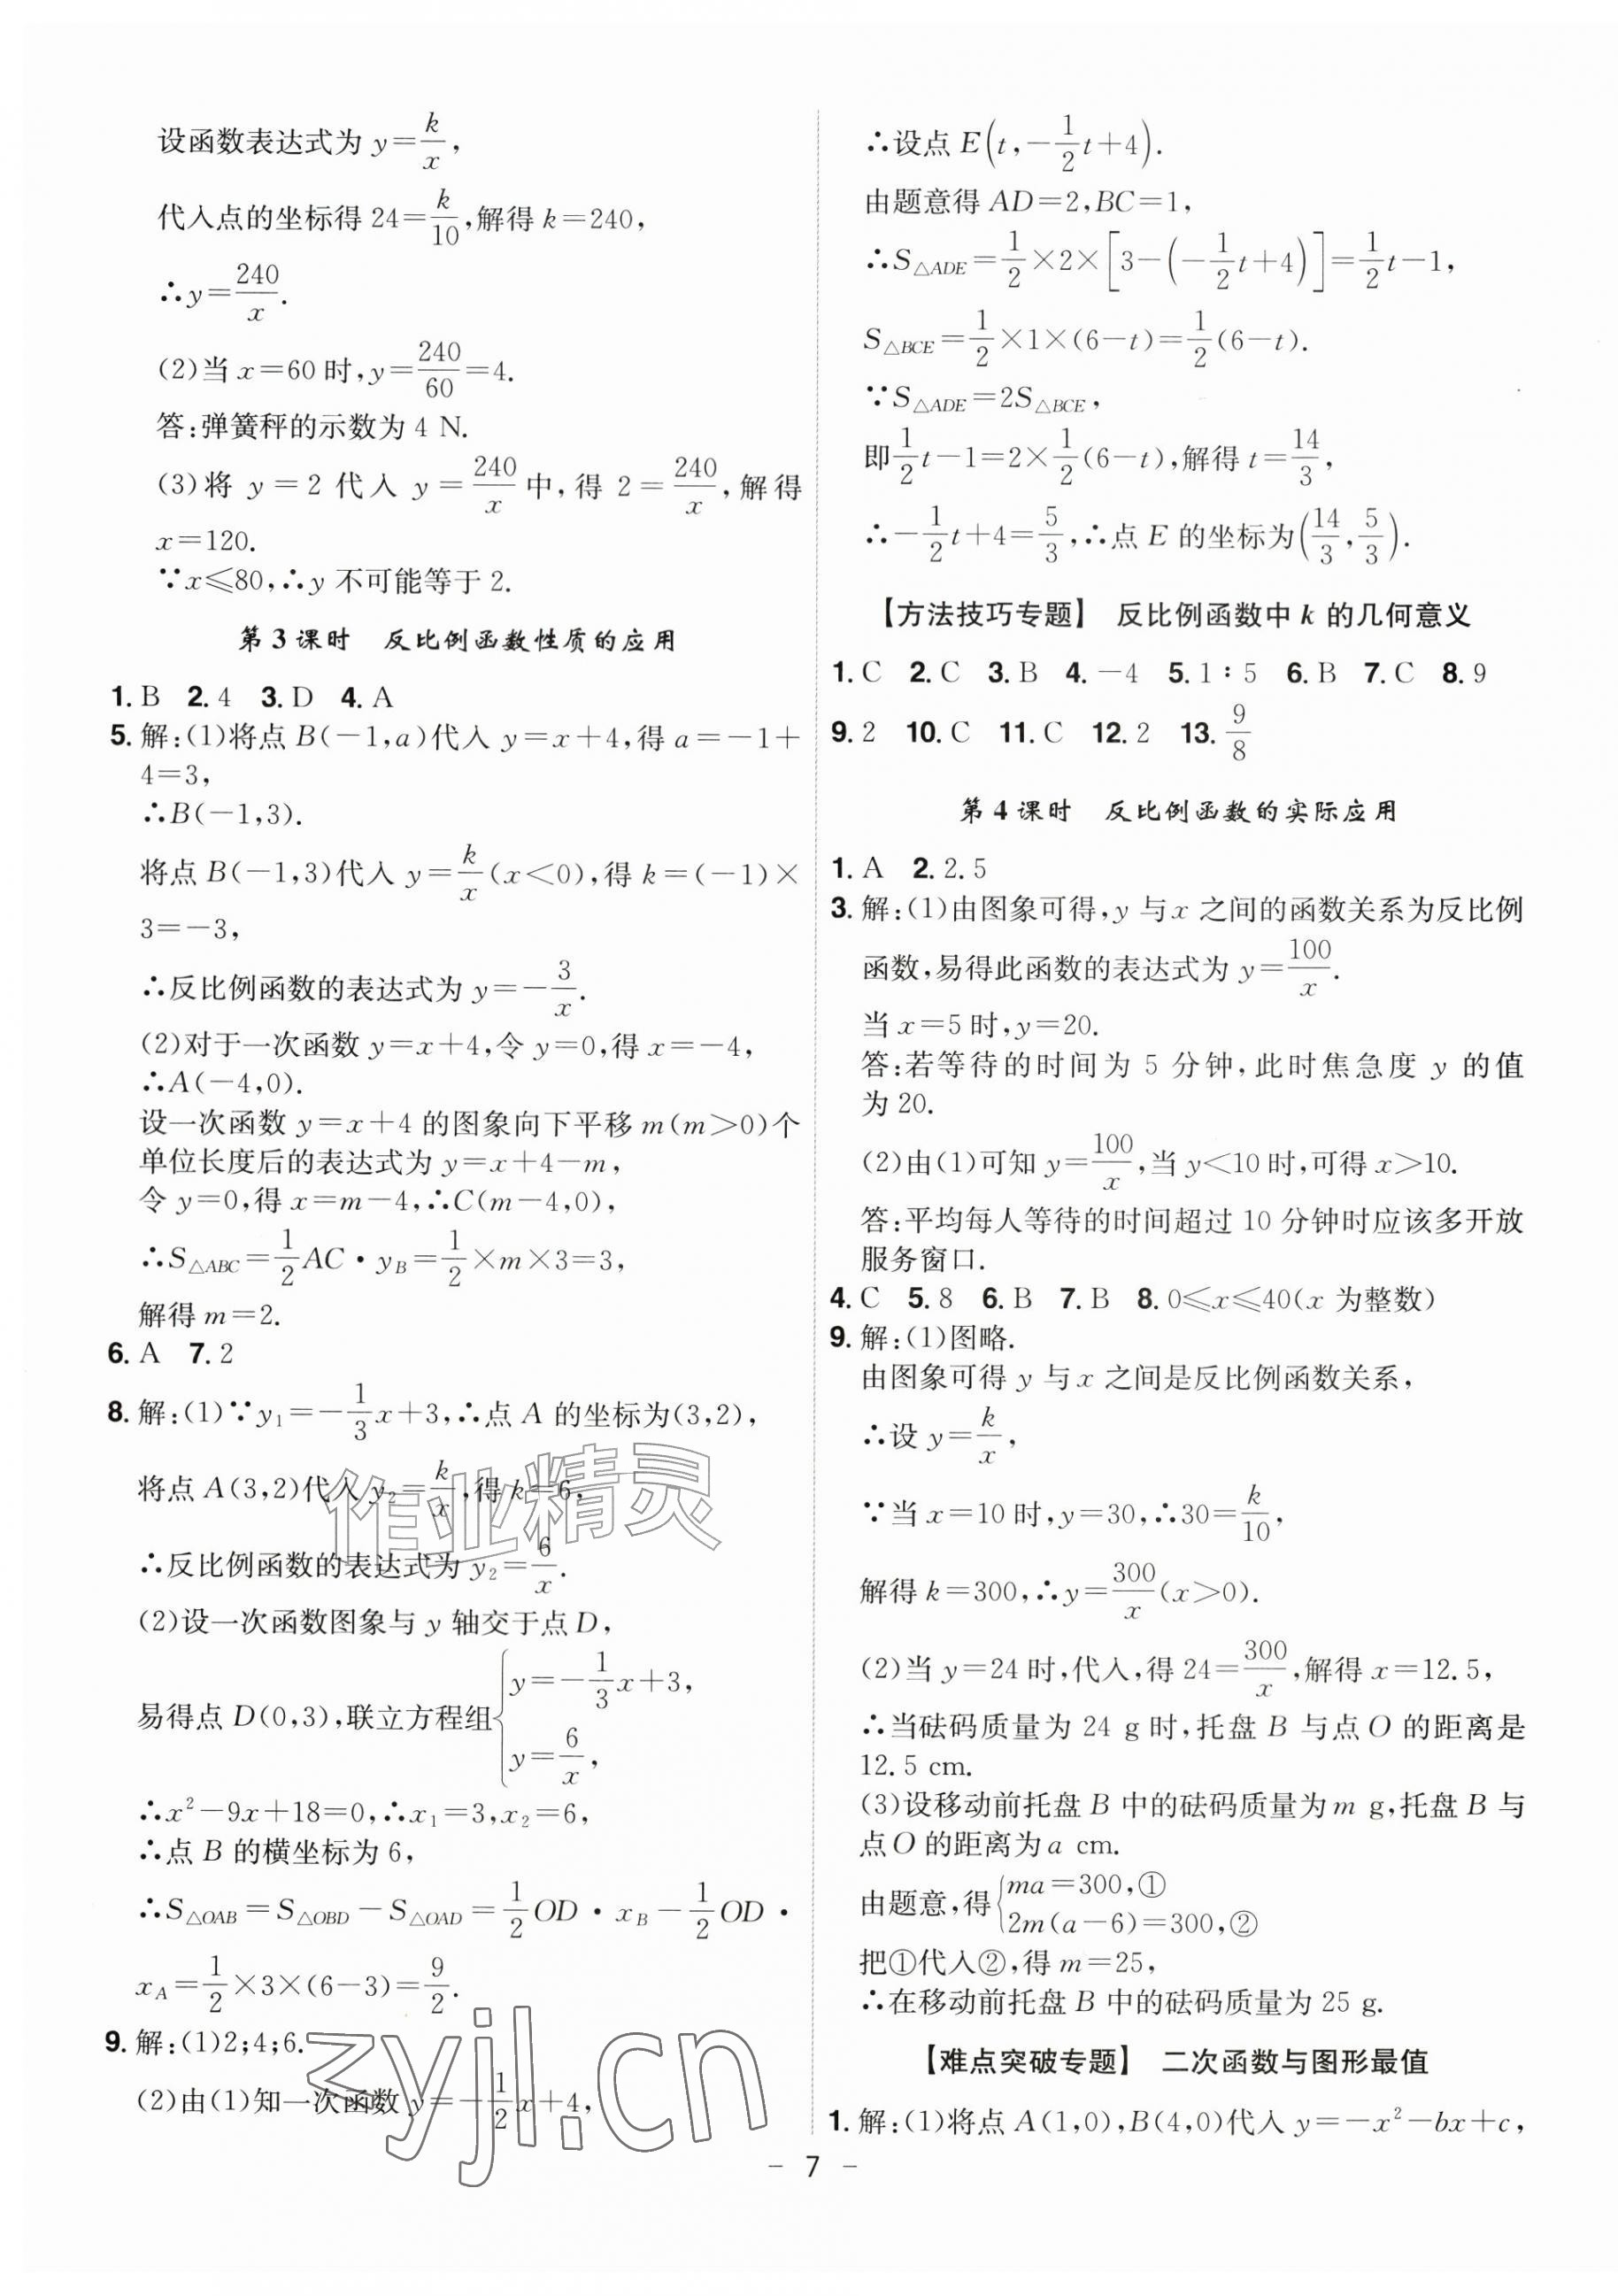 设函数表达式为 y=k/x,
代入点的坐标得 24=k/10,解得 k=240,
∴y=240/x.
(2)当 x=60 时,y=240/60=4.
答:弹簧秤的示数为 4 N.
(3)将 y=2 代入 y=240/x 中,得 2=240/x,解得
x=120.
∵x≤80,∴y 不可能等于 2.
第 3 课时 反比例函数性质的应用
1. B 2. 4 3. D 4. A
5. 解:(1)将点 B(-1,a)代入 y=x+4,得 a=-1+
4=3,
∴B(-1,3).
将点 B(-1,3)代入 y=k/x(x<0),得 k=(-1)×
3=-3,
∴反比例函数的表达式为 y=-3/x.
(2)对于一次函数 y=x+4,令 y=0,得 x=-4,
∴A(-4,0).
设一次函数 y=x+4 的图象向下平移 m(m>0)个
单位长度后的表达式为 y=x+4-m,
令 y=0,得 x=m-4,∴C(m-4,0),
∴S△ABC=1/2 AC·yB=1/2×m×3=3,
解得 m=2.
6. A 7. 2
8. 解:(1)∵y₁=-1/3 x+3,∴点 A 的坐标为(3,2),
将点 A(3,2)代入 y₂=k/x,得 k=6,
∴反比例函数的表达式为 y₂=6/x.
(2)设一次函数图象与 y 轴交于点 D,
易得点 D(0,3),联立方程组{y=-1/3 x+3, y=6/x,
∴x²-9x+18=0,∴x₁=3,x₂=6,
∴点 B 的横坐标为 6,
∴S△OAB=S△OBD-S△OAD=1/2 OD·xB-1/2 OD·
xA=1/2×3×(6-3)=9/2.
9. 解:(1)2;4;6.
(2)由(1)知一次函数 y=-1/2 x+4,
∴设点 E(t,-1/2 t+4).
由题意得 AD=2,BC=1,
∴S△ADE=1/2×2×[3-(-1/2 t+4)]=1/2 t-1,
S△BCE=1/2×1×(6-t)=1/2(6-t).
∵S△ADE=2S△BCE,
即1/2 t-1=2×1/2(6-t),解得 t=14/3,
∴-1/2 t+4=5/3,∴点 E 的坐标为(14/3,5/3).
【方法技巧专题】 反比例函数中 k 的几何意义
1. C 2. C 3. B 4. -4 5. 1∶5 6. B 7. C 8. 9
9. 2 10. C 11. C 12. 2 13. 9/8
第 4 课时 反比例函数的实际应用
1. A 2. 2.5
3. 解:(1)由图象可得,y 与 x 之间的函数关系为反比例
函数,易得此函数的表达式为 y=100/x.
当 x=5 时,y=20.
答:若等待的时间为 5 分钟,此时焦急度 y 的值
为 20.
(2)由(1)可知 y=100/x,当 y<10 时,可得 x>10.
答:平均每人等待的时间超过 10 分钟时应该多开放
服务窗口.
4. C 5. 8 6. B 7. B 8. 0≤x≤40(x 为整数)
9. 解:(1)图略.
由图象可得 y 与 x 之间是反比例函数关系,
∴设 y=k/x,
∵当 x=10 时,y=30,∴30=k/10,
解得 k=300,∴y=300/x(x>0).
(2)当 y=24 时,代入,得 24=300/x,解得 x=12.5,
∴当砝码质量为 24 g 时,托盘 B 与点 O 的距离是
12.5 cm.
(3)设移动前托盘 B 中的砝码质量为 m g,托盘 B 与
点 O 的距离为 a cm.
由题意,得{ma=300,① 2m(a-6)=300,②
把①代入②,得 m=25,
∴在移动前托盘 B 中的砝码质量为 25 g.
【难点突破专题】 二次函数与图形最值
1. 解:(1)将点 A(1,0),B(4,0)代入 y=-x²-bx+c,
- 7 -
作业精灵
zyjl.cn